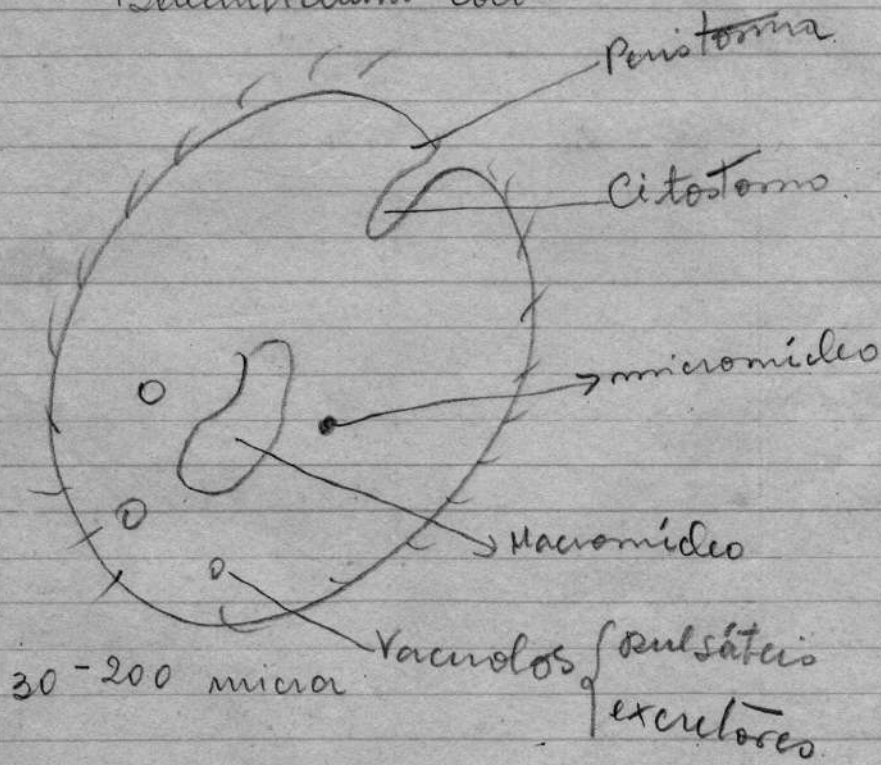 Balantidium coli
Peristoma
Citostomo
micronúcleo
Macronúcleo
Vacuolos { pulsáteis
excretores
30-200 micra